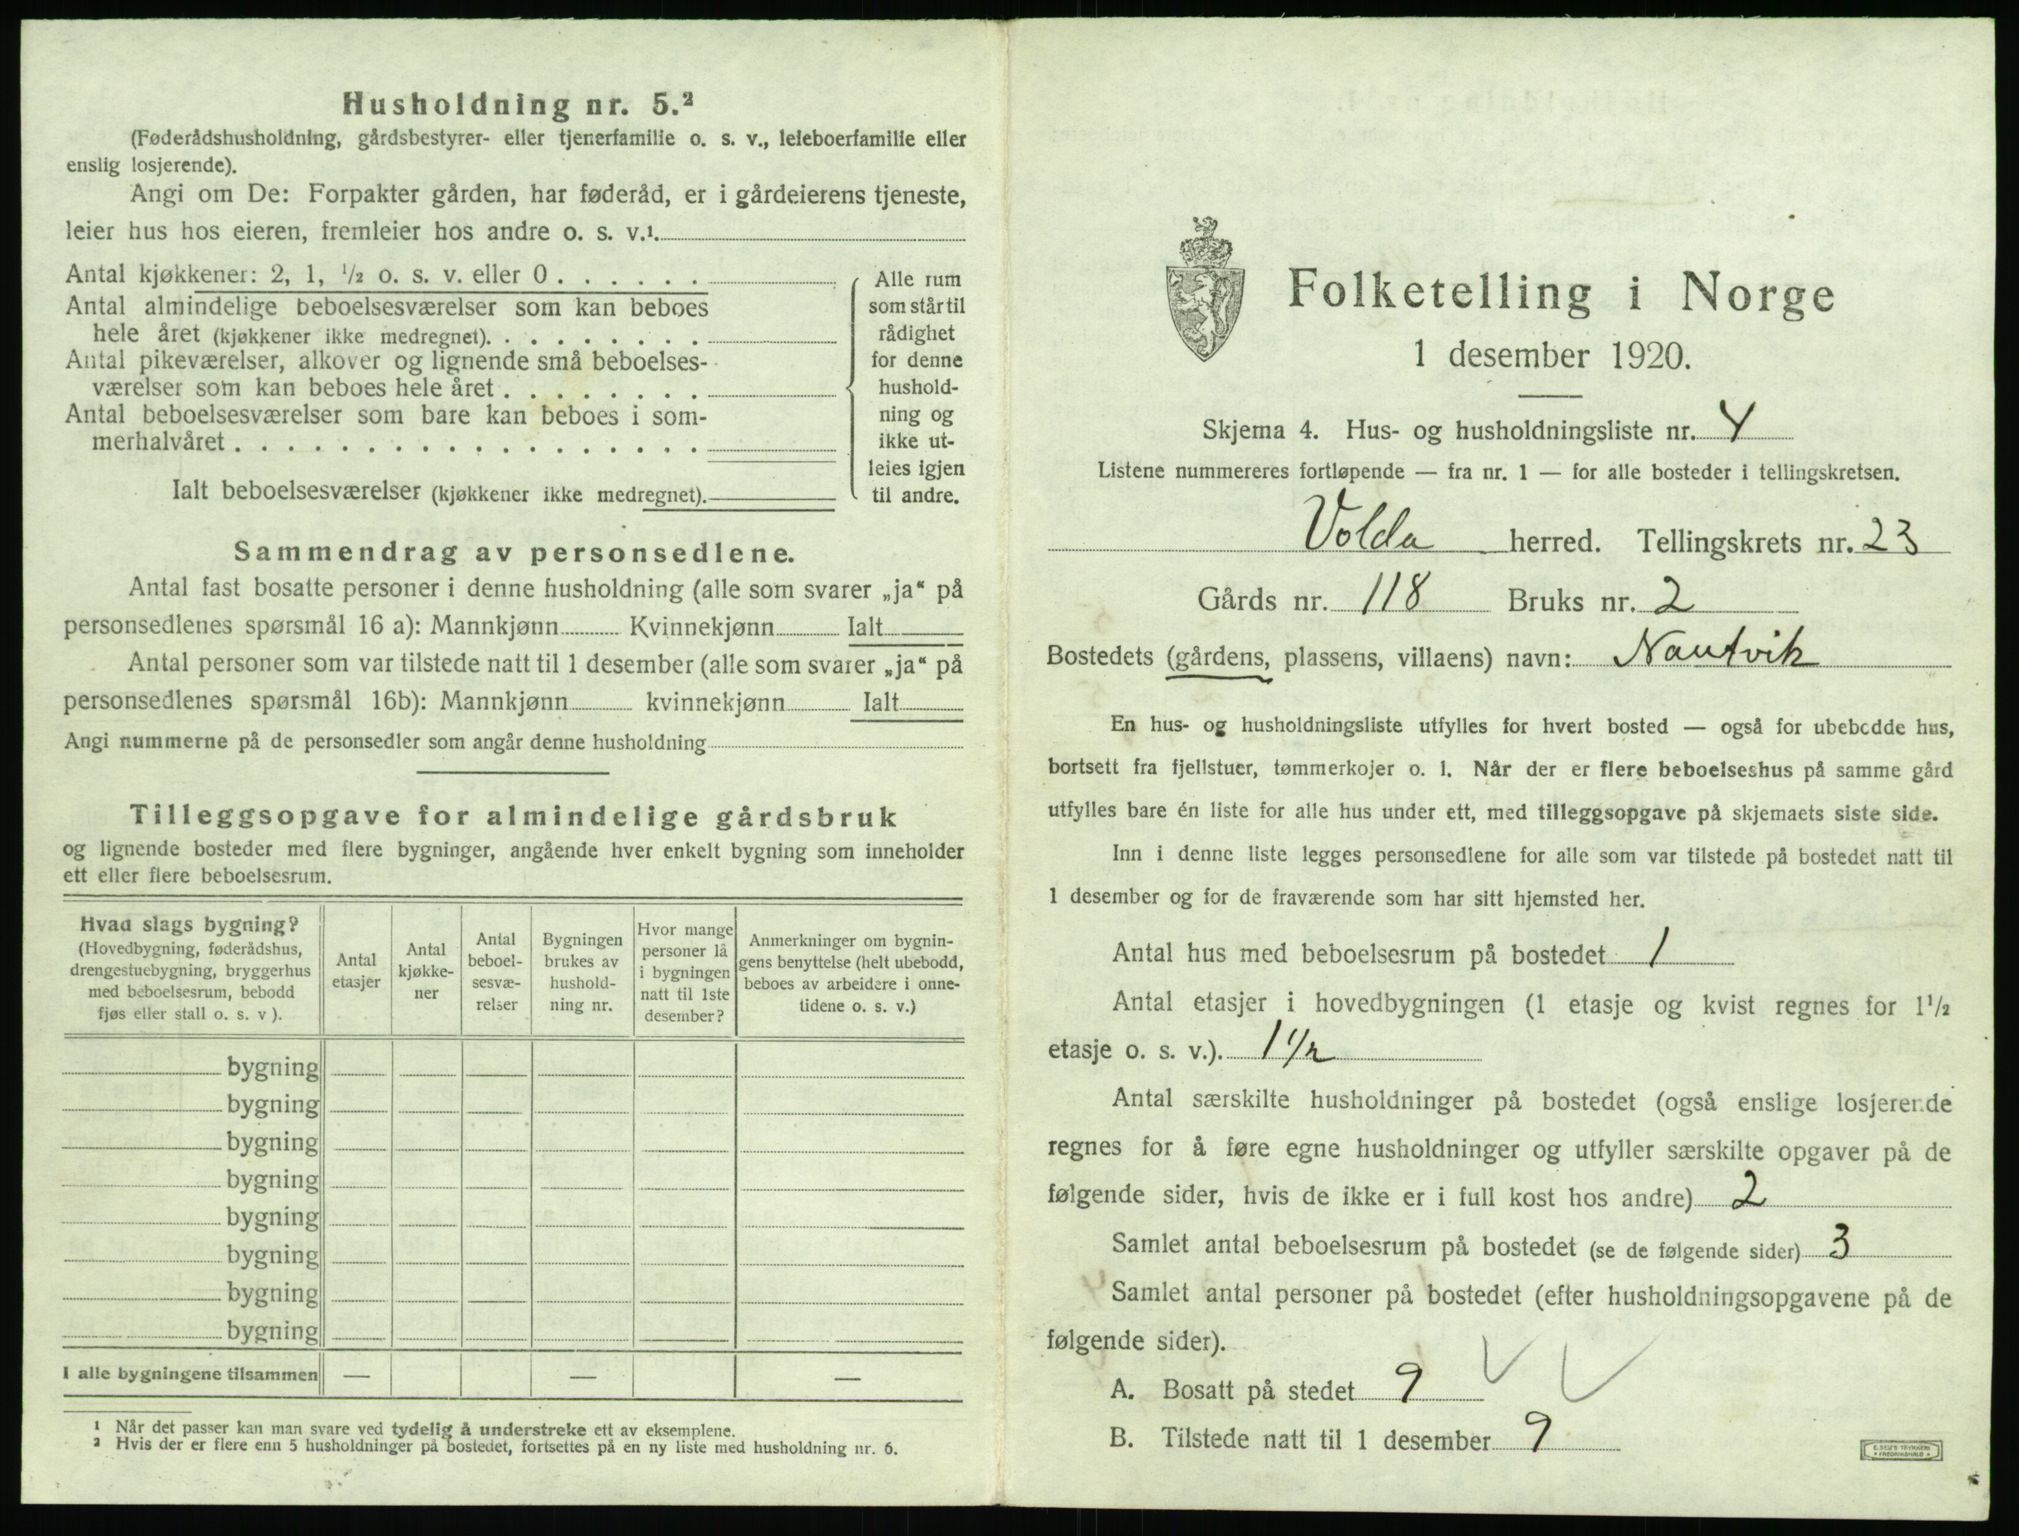 Husholdning nr. 5.²
(Føderådshusholdning, gårdsbestyrer- eller tjenerfamilie o. s. v., leieboerfamilie eller
enslig losjerende).
Angi om De: Forpakter gården, har føderåd, er i gårdeierens tjeneste,
leier hus hos eieren, fremleier hos andre o. s. v.¹.
Antal kjøkkener: 2, 1, ½ o. s. v. eller 0 . . . . . .
Antal almindelige beboelsesværelser som kan beboes
hele året (kjøkkener ikke medregnet). . . . . . . . .
Antal pikeværelser, alkover og lignende små beboelses-
værelser som kan beboes hele året . . . . . . . .
Antal beboelsesværelser som bare kan beboes i som-
merhalvåret . . . . . . . . . . . . . . . . . .
Ialt beboelsesværelser (kjøkkener ikke medregnet).
Alle rum
som står til
rådighet
for denne
hushold-
ning og
ikke ut-
leies igjen
til andre.
Sammendrag av personsedlene.
Antal fast bosatte personer i denne husholdning (alle som svarer „ja“ på
personsedlenes spørsmål 16 a): Mannkjønn Kvinnekjønn Ialt
Antal personer som var tilstede natt til 1 desember (alle som svarer „ja“ på
personsedlenes spørsmål 16b): Mannkjønn kvinnekjønn Ialt
Angi nummerne på de personsedler som angår denne husholdning
Tilleggsopgave for almindelige gårdsbruk
og lignende bosteder med flere bygninger, angående hver enkelt bygning som inneholder
ett eller flere beboelsesrum.
Hvad slags bygning?
(Hovedbygning, føderådshus,
drengestuebygning, bryggerhus
med beboelsesrum, bebodd
fjøs eller stall o. s. v ).
Antal
etasjer
Antal
kjøkke-
ner
Antal
beboel-
sesvæ-
relser
Bygningen
brukes av
hushold-
ning nr.
Hvor mange
personer lå
i bygningen
natt til 1ste
desember?
Anmerkninger om bygnin-
gens benyttelse (helt ubebodd,
beboes av arbeidere i onne-
tidene o. s. v.)
bygning
bygning
bygning
bygning
bygning
bygning
bygning
bygning
I alle bygningene tilsammen — — —
¹ Når det passer kan man svare ved tydelig å understreke ett av eksemplene.
² Hvis der er flere enn 5 husholdninger på bostedet, fortsettes på en ny liste med husholdning nr. 6.
Folketelling i Norge
1 desember 1920.
Skjema 4. Hus- og husholdningsliste nr. 4
Listene nummereres fortløpende — fra nr. 1 — for alle bosteder i tellingskretsen.
Volda herred. Tellingskrets nr. 23
Gårds nr. 118 Bruks nr. 2
Bostedets (gårdens, plassens, villaens) navn: Nautvik
En hus- og husholdningsliste utfylles for hvert bosted — også for ubebodde hus,
bortsett fra fjellstuer, tømmerkojer o. l. Når der er flere beboelseshus på samme gård
utfylles bare én liste for alle hus under ett, med tilleggsopgave på skjemaets siste side.
Inn i denne liste legges personsedlene for alle som var tilstede på bostedet natt til
1 desember og for de fraværende som har sitt hjemsted her.
Antal hus med beboelsesrum på bostedet 1
Antal etasjer i hovedbygningen (1 etasje og kvist regnes for 1½
etasje o. s. v.). 1 1/2
Antal særskilte husholdninger på bostedet (også enslige losjerende
regnes for å føre egne husholdninger og utfyller særskilte opgaver på de
følgende sider, hvis de ikke er i full kost hos andre) 2
Samlet antal beboelsesrum på bostedet (se de følgende sider) 3
Samlet antal personer på bostedet (efter husholdningsopgavene på de
følgende sider).
A. Bosatt på stedet 9
B. Tilstede natt til 1 desember 9